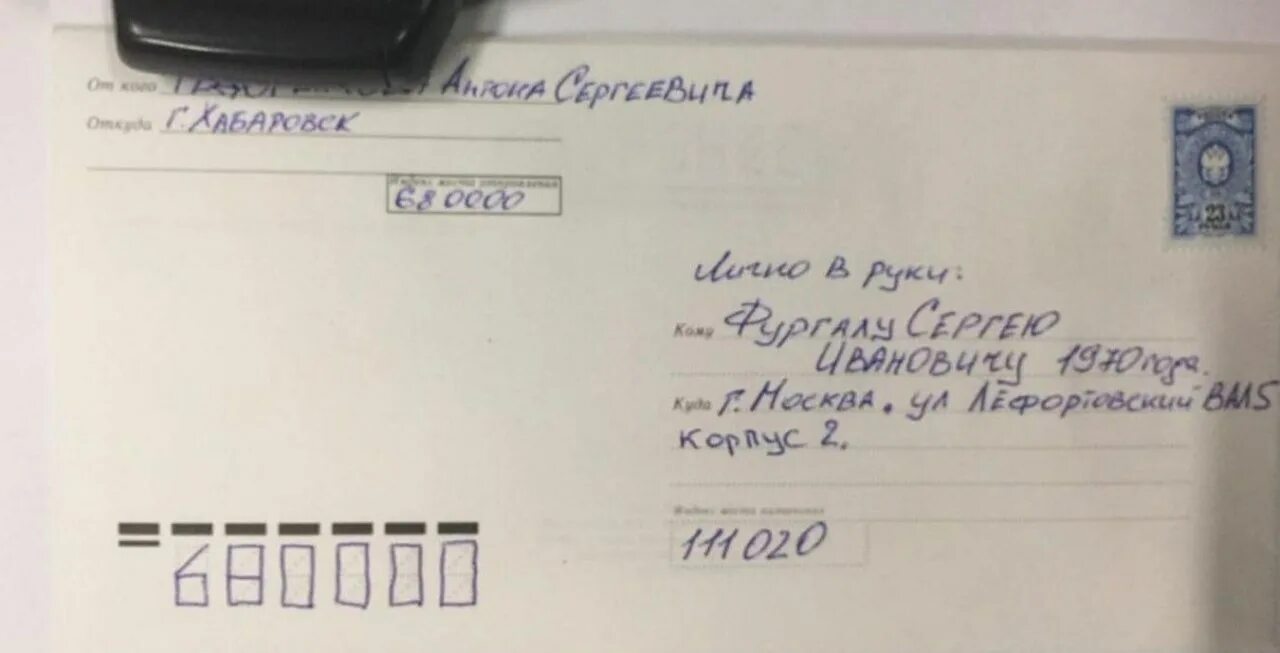 От кого Антона Сергеевича
Откуда г. Хабаровск
Индекс места отправления
680000
23
рубля
Лично в руки:
Кому Фургалу Сергею
Ивановичу 1970 года.
Куда г. Москва. ул Лефортовский ВАЛ5
корпус 2.
Индекс места назначения
111020
680000